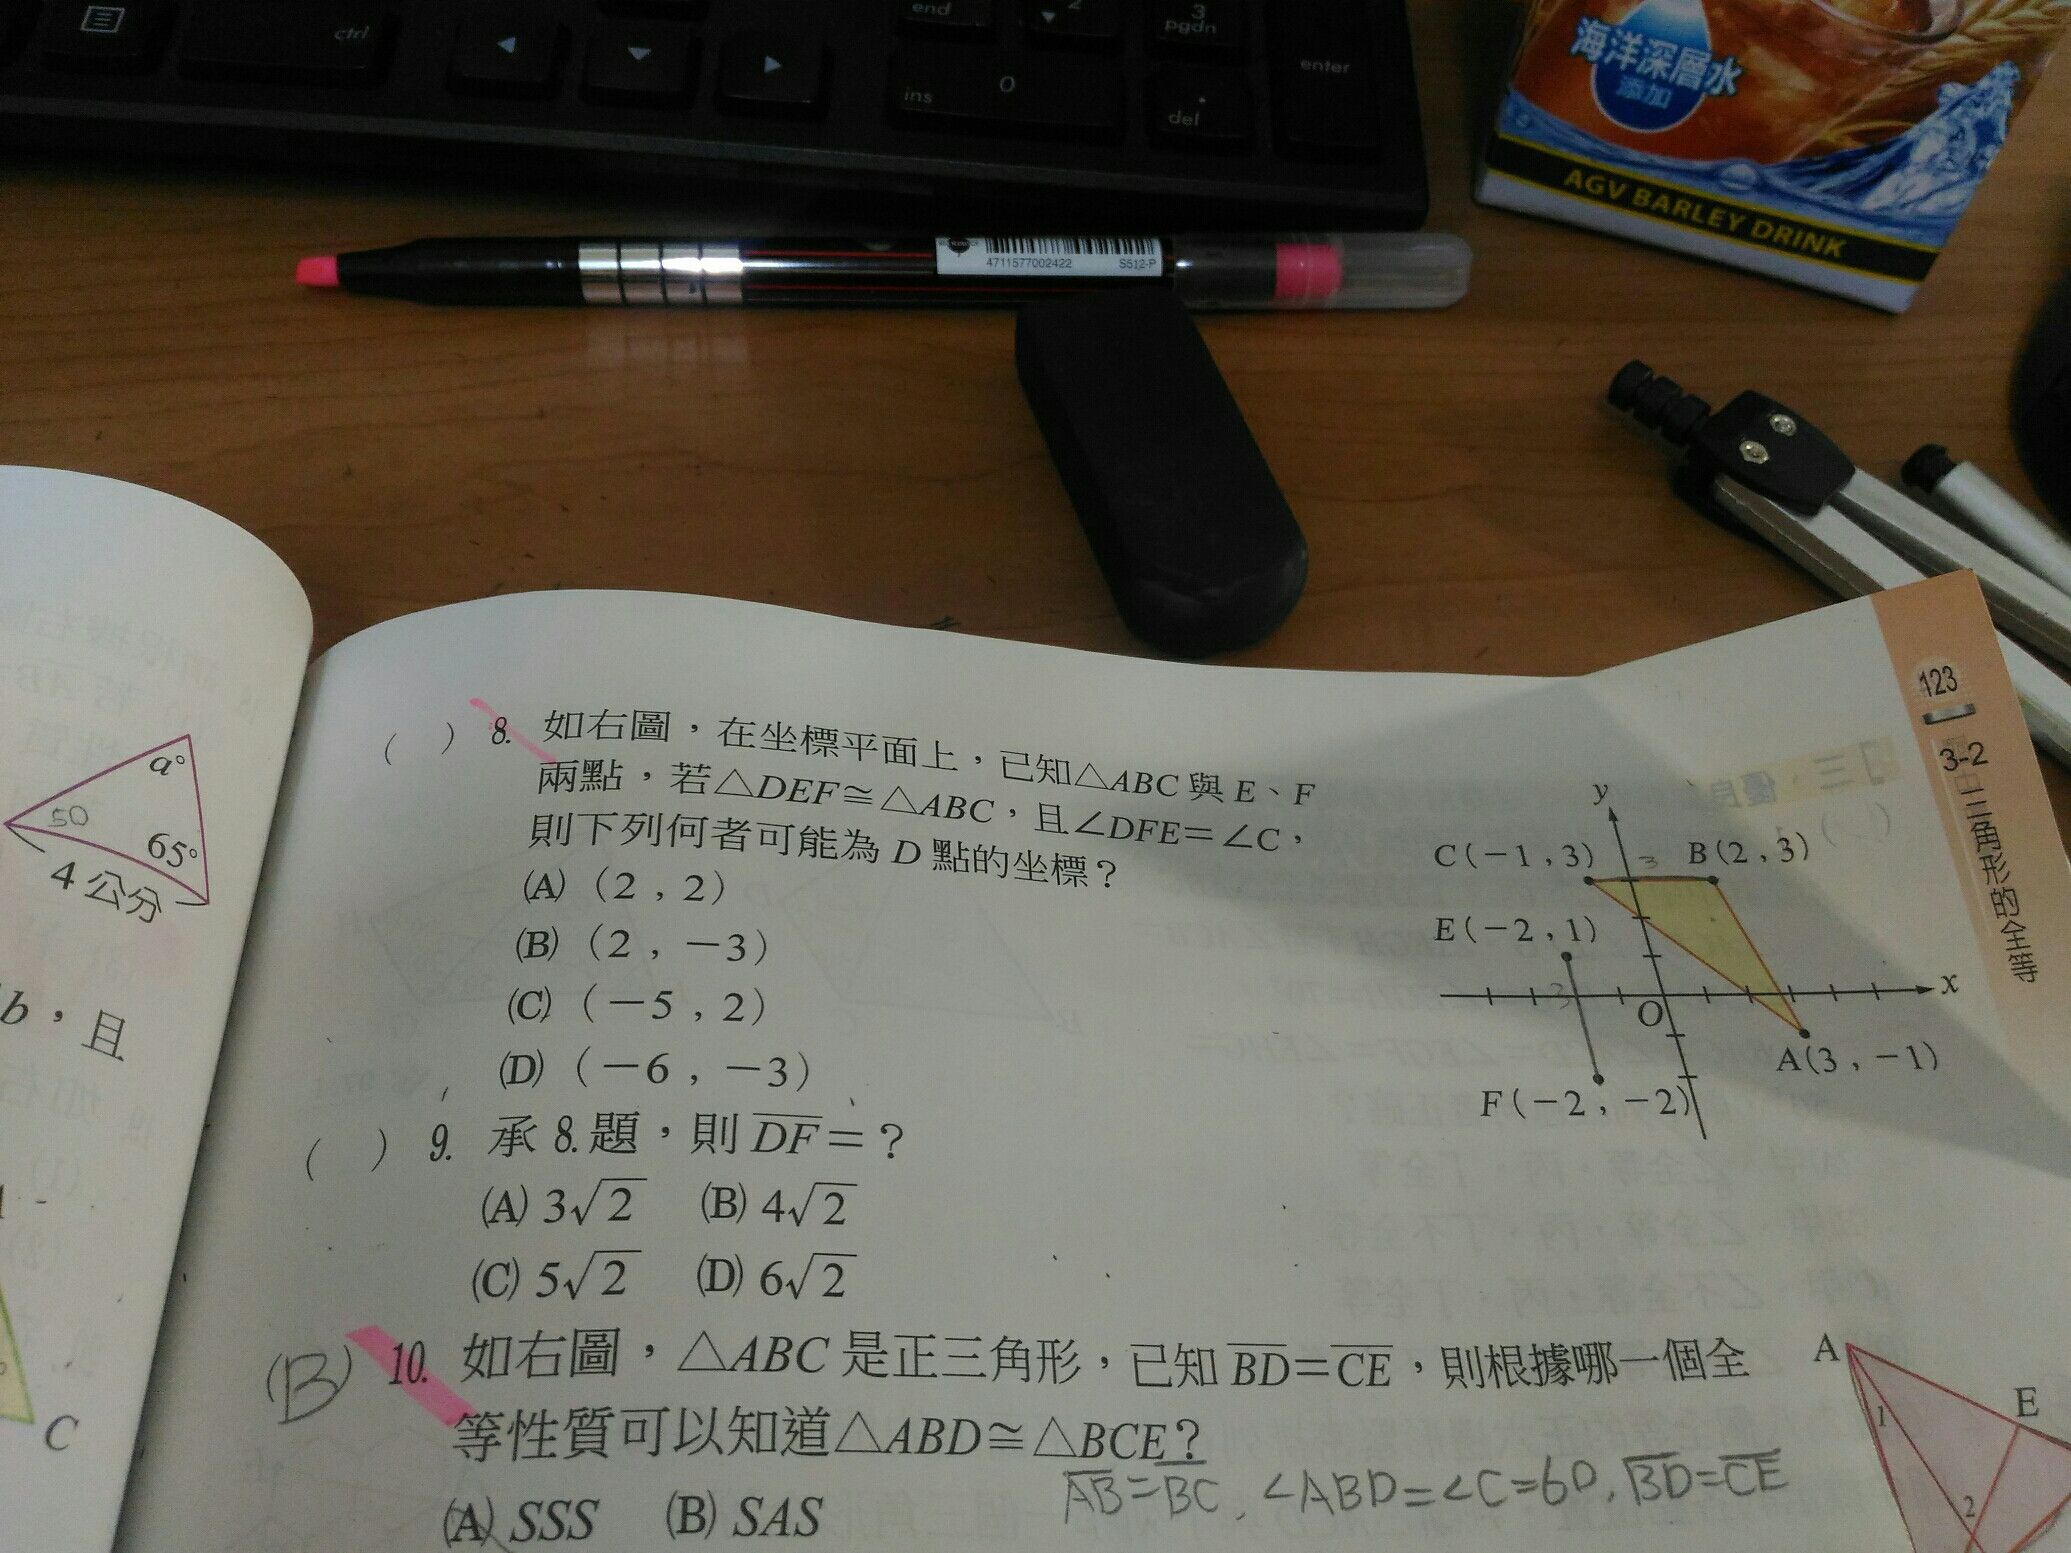 ctrl
end
2
3
pgdn
ins
0
del
enter
海洋深層水
添加
AGV BARLEY DRINK
4711577002422
S512-P
123
3-2
三角形的全等
a°
50
65°
4公分
b，且
C
( ) 8. 如右圖，在坐標平面上，已知△ABC與E、F
兩點，若△DEF≅△ABC，且∠DFE=∠C，
則下列何者可能為D點的坐標？
(A) (2，2)
(B) (2，-3)
(C) (-5，2)
(D) (-6，-3)
y
C(-1，3)
3
B(2，3)
E(-2，1)
3
x
O
A(3，-1)
F(-2，-2)
( ) 9. 承8.題，則DF=？
(A) 3√2 (B) 4√2
(C) 5√2 (D) 6√2
(B) 10. 如右圖，△ABC是正三角形，已知BD=CE，則根據哪一個全
等性質可以知道△ABD≅△BCE？
AB=BC, ∠ABD=∠C=60, BD=CE
(A) SSS (B) SAS
A
E
1
2